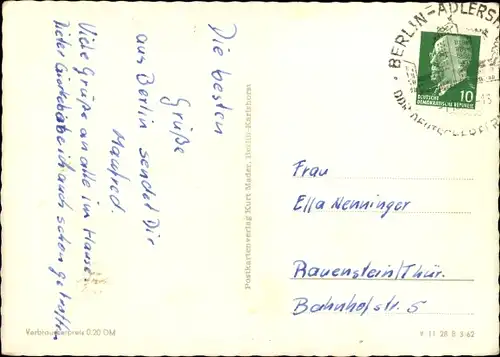 Die besten
Grüße
aus Berlin sendet Dir
Manfred.
Viele Grüße an alle im Hause.
habe ich auch schon getroffen
Postkartenverlag Kurt Mader, Berlin-Karlshorst
BERLIN-ADLERSH
10
DEUTSCHE
DEMOKRATISCHE REPUBLIK
Frau
Ella Nenninger
Rauenstein/Thür.
Bahnhofstr. 5
Verbraucherpreis 0.20 DM
V 11 28 B 3/62